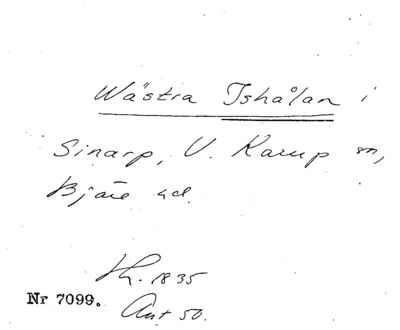 Wästra Ishålan i
Sinarp, V. Karup sn,
Bjäre hd.
Lh. 1835
Nr 7099.
Ant 50.